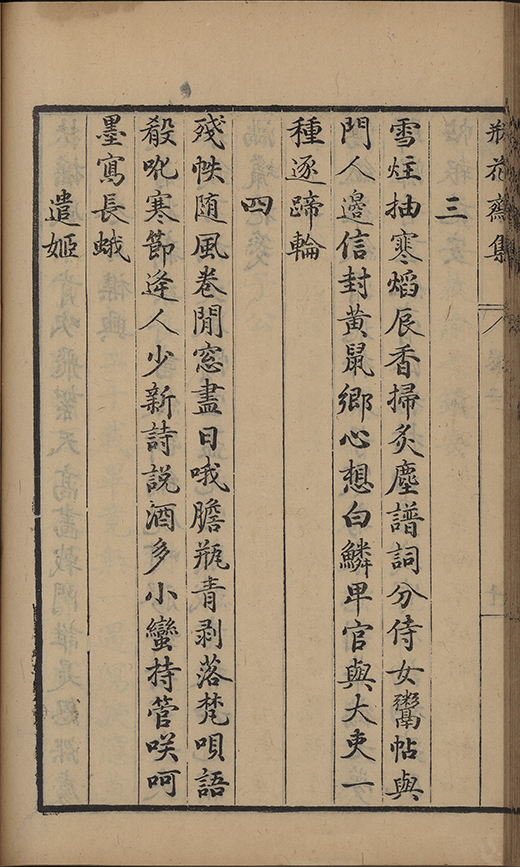 瓶花齋集
三
雪炷抽寒熖辰香掃炙塵譜詞分侍女鬻帖與
門人邊信封黄鼠鄉心想白鱗卑官與大吏一
種逐蹄輪
四
殘帙随風卷閒窓盡日哦膽瓶青剥落梵唄語
殽吪寒節逢人少新詩説酒多小蠻持管咲呵
墨寫長蛾
遣姬